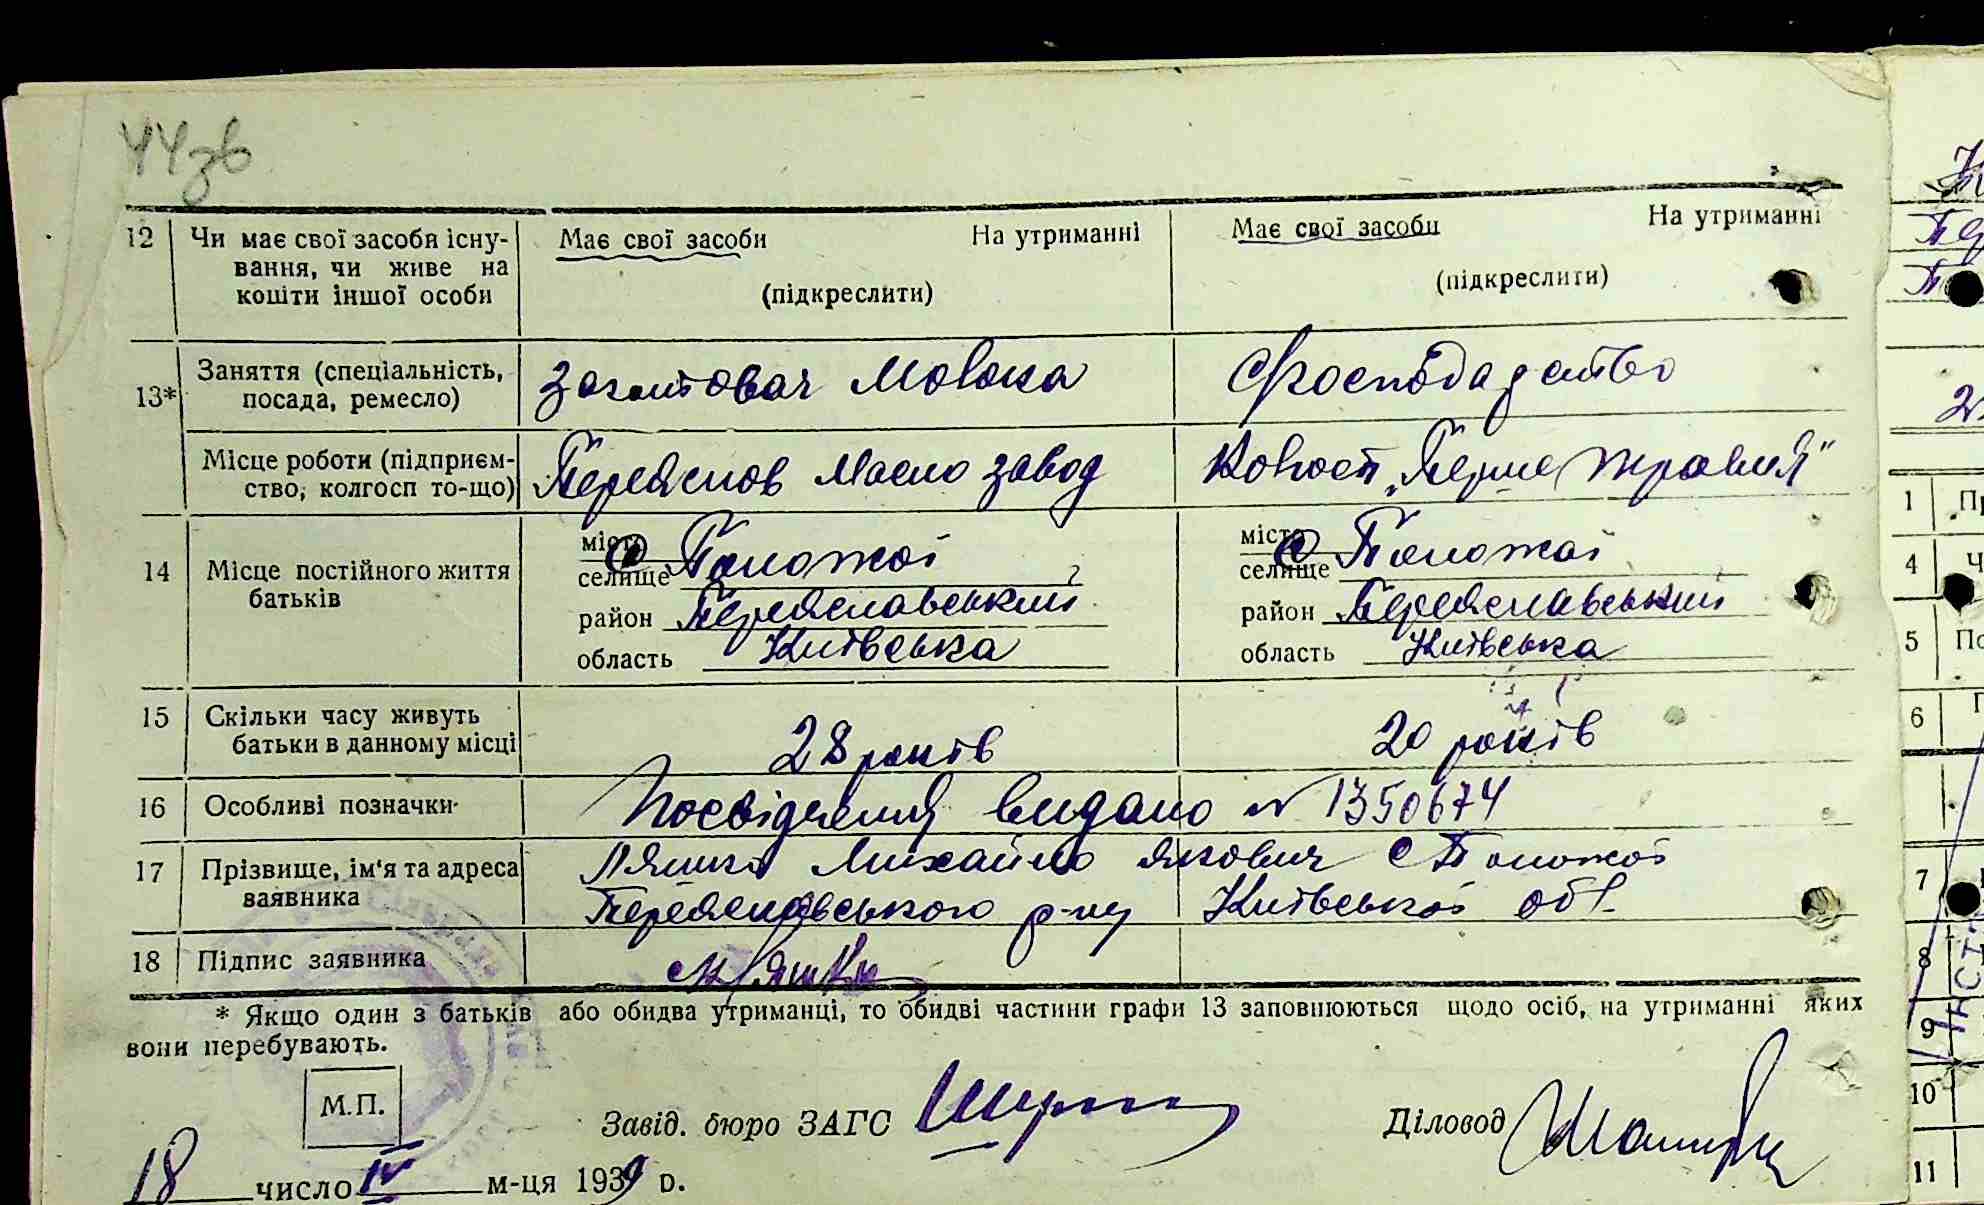 44зв
12 Чи має свої засоби існу-
вання, чи живе на
кошти іншої особи
Має свої засоби На утриманні
(підкреслити)
Має свої засоби На утриманні
(підкреслити)
13* Заняття (спеціальність,
посада, ремесло)
заготовач молока
Господарство
Місце роботи (підприєм-
ство, колгосп то-що)
Переяслов Масло завод
Колгосп „Перше травня"
14 Місце постійного життя
батьків
місто
селище с Положаї
район Переяславський
область Київська
місто
селище с Положаї
район Переяславський
область Київська
15 Скільки часу живуть
батьки в данному місці
28 років
20 років
16 Особливі позначки
Посвідчення видано № 1350674
17 Прізвище, ім'я та адреса
заявника
Ляшко Михайло Якович с Положаї
Переяславського р-ну Київської обл.
18 Підпис заявника
М Ляшко
* Якщо один з батьків або обидва утриманці, то обидві частини графи 13 заповнюються щодо осіб, на утриманні яких
вони перебувають.
М.П.
Завід. бюро ЗАГС
Діловод
18 число IV м-ця 1939 р.
1
4
5
6
7
8
9
10
11